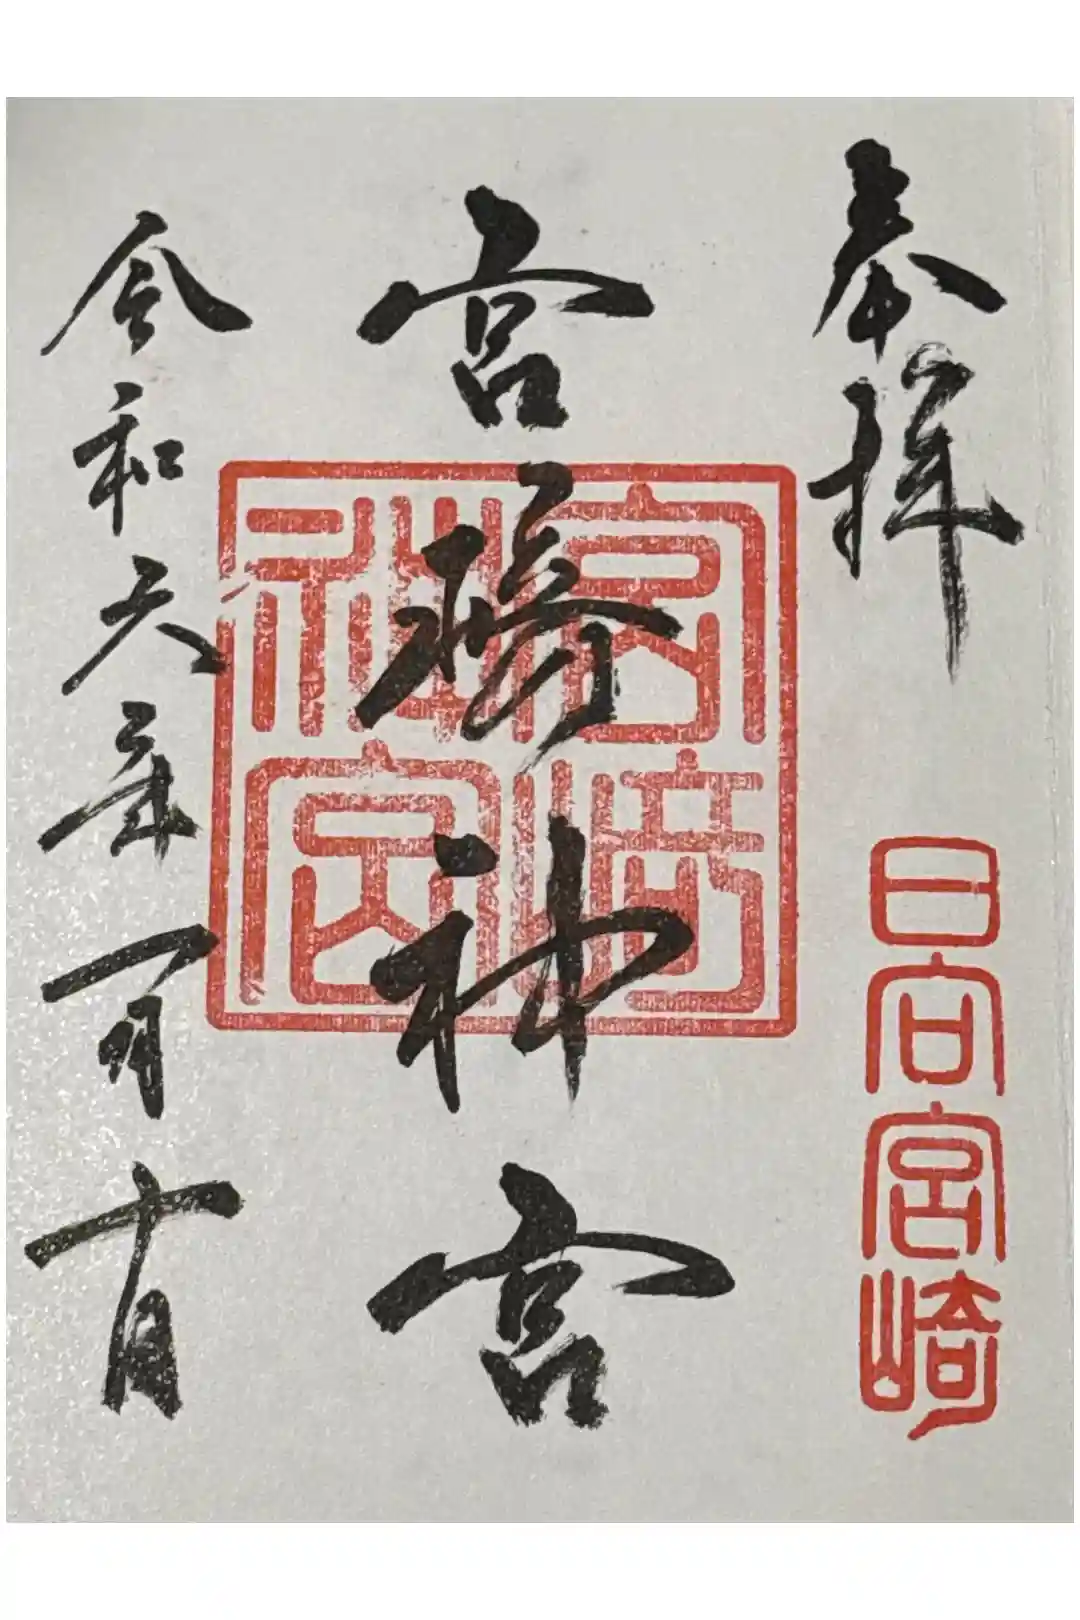 奉拝
日向宮崎
宮崎神宮
宮崎神宮
令和六年一月十日